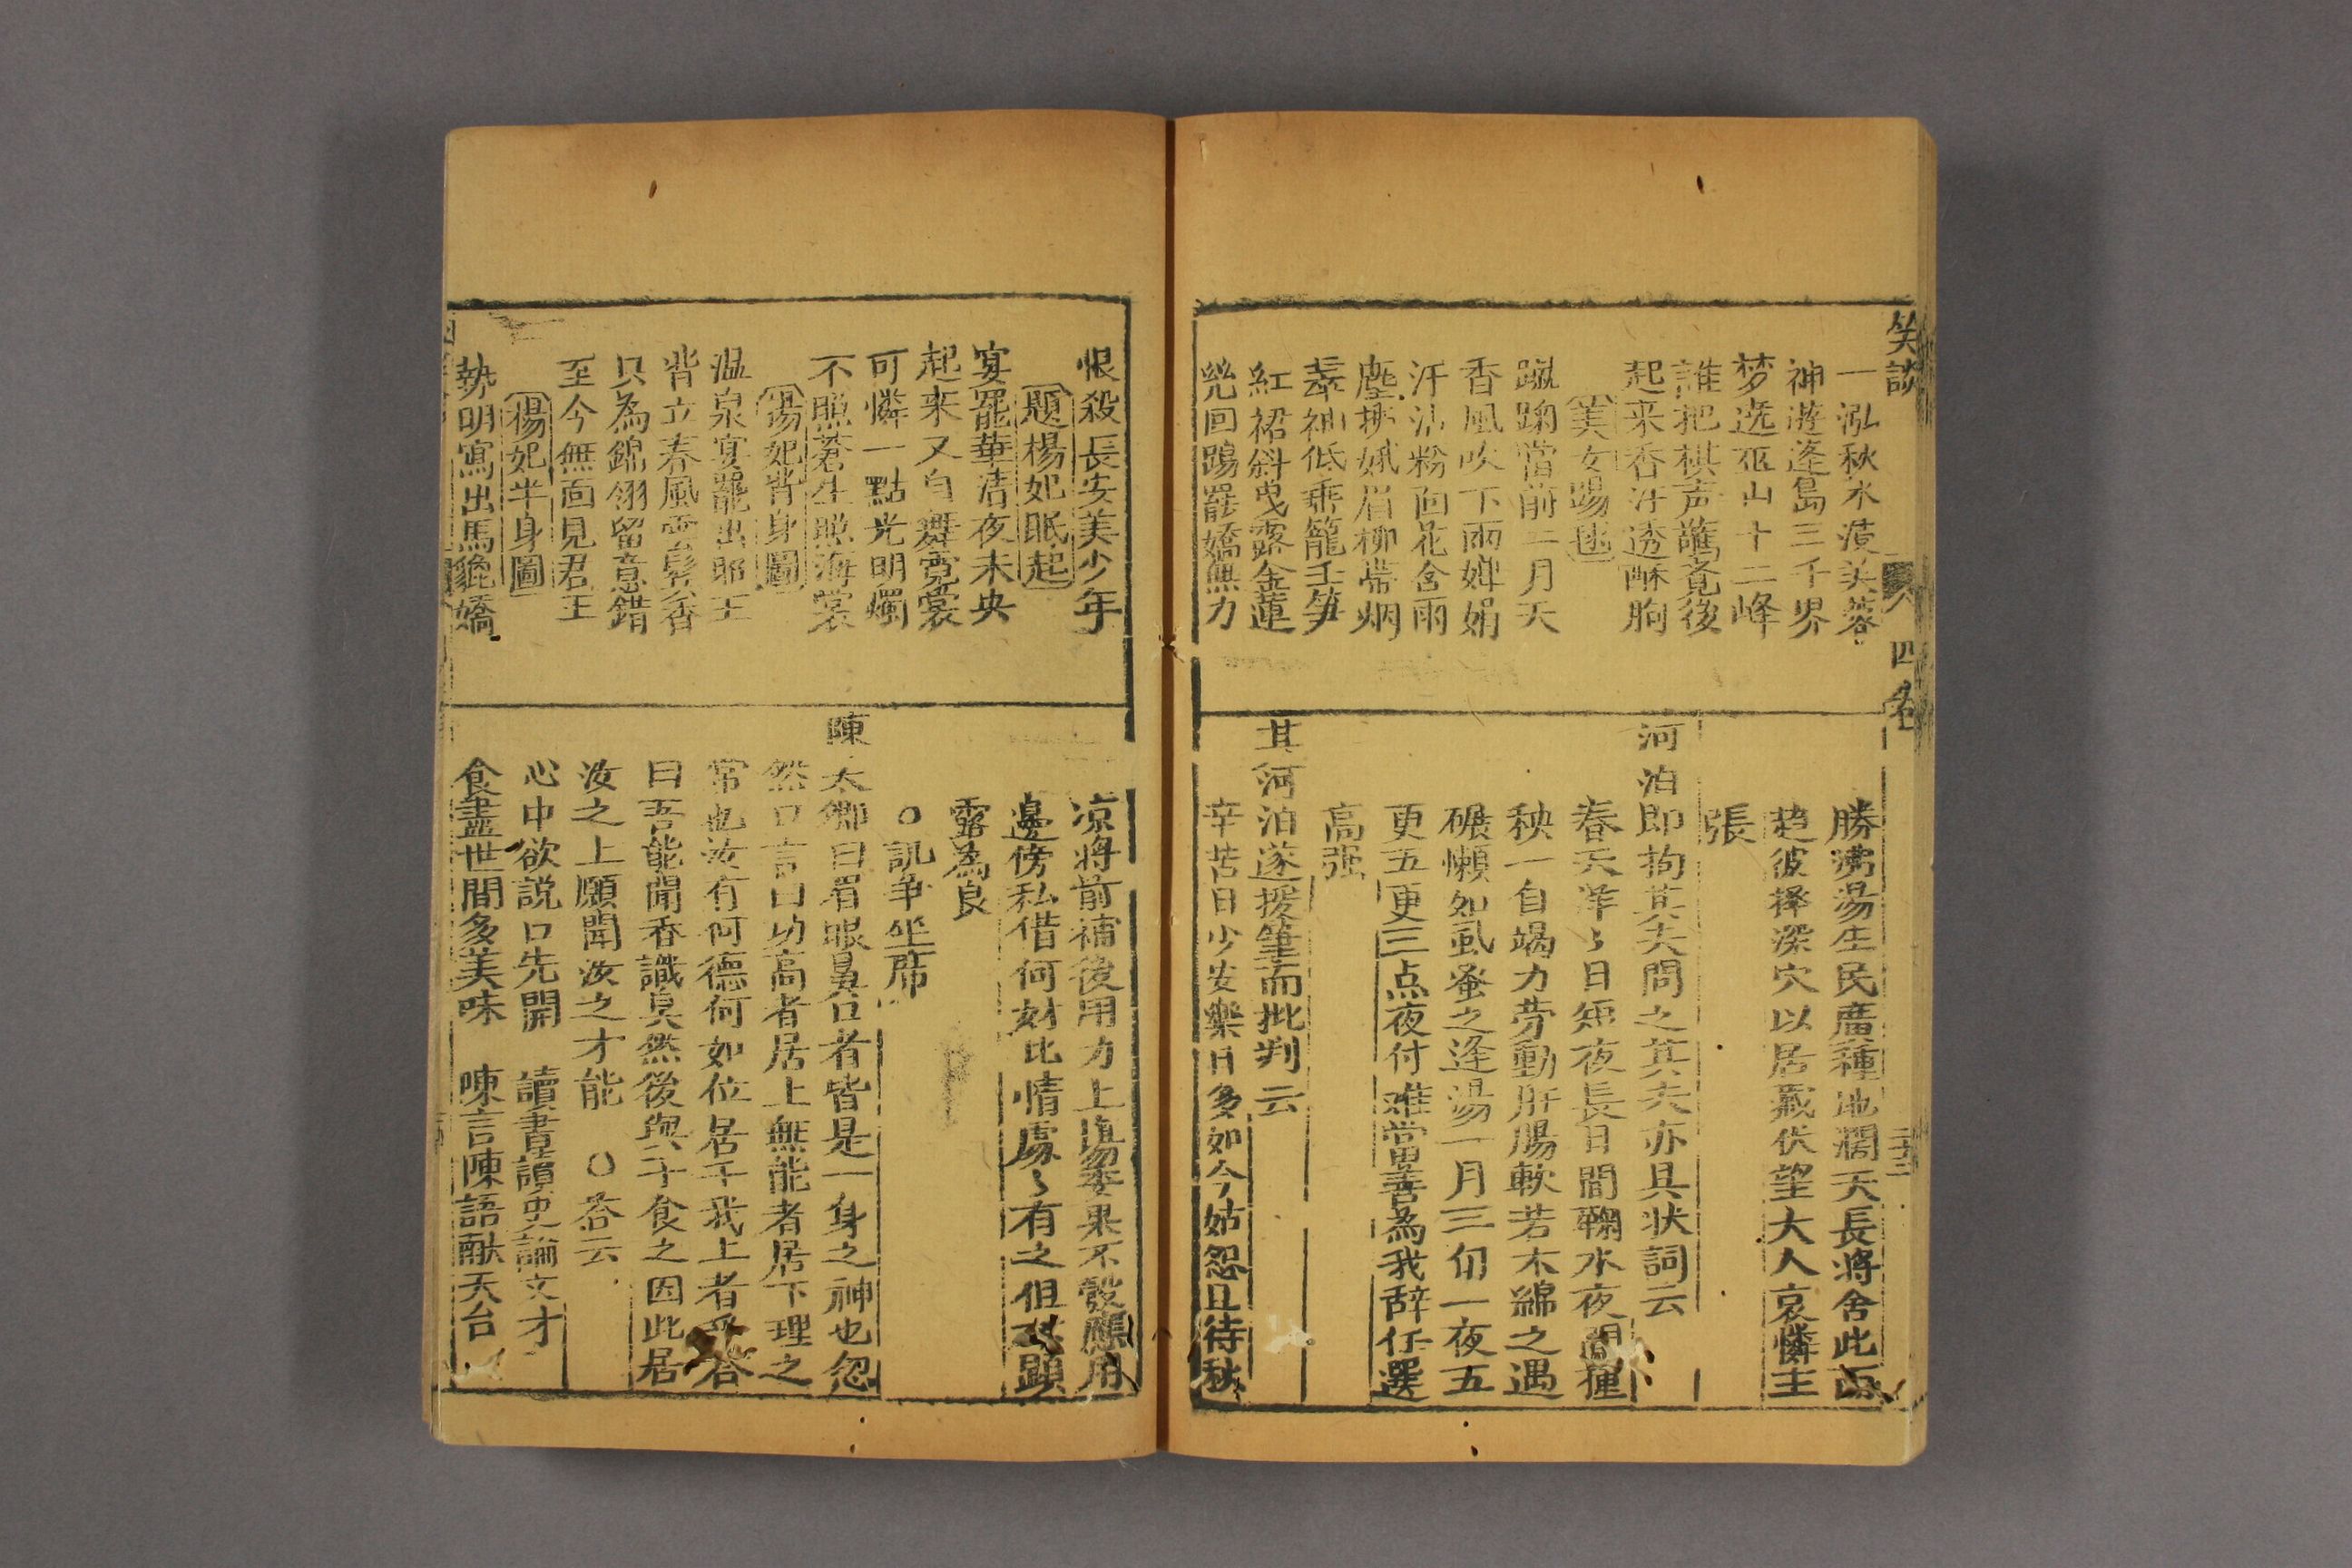 笑談
四卷
一泓秋水漬芙蓉
神遊蓬島三千界
梦遶巫山十二峰
誰把棋声驚覚後
起来香汗透酥胸
美女踢毬
蹴踘當前二月天
香風吹下両嬋娟
汗沾粉面花含雨
塵拂娥眉柳帶烟
翠袖低垂籠玉笋
紅裙斜曵露金蓮
幾回踢罷嬌無力
恨殺長安美少年
題楊妃眠起
宴罷華清夜未央
起来又自舞霓裳
可憐一點光明燭
不照蒼生照海棠
楊妃背身圖
温泉宴罷出耶王
背立春風雲髻香
只為錦翎留意錯
至今無面見君王
楊妃半身圖
勢明寫出馬嵬嬌
勝沸湯生民廣種地濶天長將舍此而
趋彼擇深穴以居藏伏望大人哀憐主
張
河泊即拘其夫問之其夫亦具状詞云
春天洋〻日短夜長日間鞠水夜間種
秧一自竭力劳動肝腸軟若木綿之遇
碾懶如虱蚤之逢湯一月三旬一夜五
更五更三点夜付难當望善為我辞任選
高强
其河泊遂援筆而批判云
辛苦日少安樂日多如今姑恕且待秋
凉將前補後用力上塲委果不彀願用
邊傍私借何妨比情處〻有之但不顕
露為良
○訊争坐席
陳太卿曰眉眼鼻口者皆是一身之神也忽
然口言曰功高者居上無能者居下理之
常也汝有何德何如位居于我上者乎答
曰吾能聞香識臭然後與子食之因此居
汝之上願聞汝之才能 ○答云
心中欲説口先開 讀書讀史論文才
食盡世間多美味 陳言陳語献天台